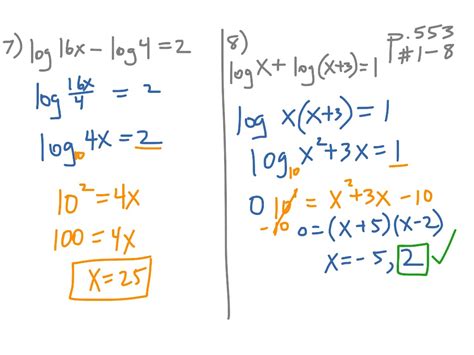 7) log 16x - log 4 = 2
log 16x/4 = 2
log₁₀ 4x = 2
10² = 4x
100 = 4x
x = 25
8)
log x + log (x+3) = 1
p. 553
# 1-8
log x(x+3) = 1
log₁₀ x² + 3x = 1
0 10 = x² + 3x - 10
-10 0 = (x+5)(x-2)
x = -5, 2 ✓